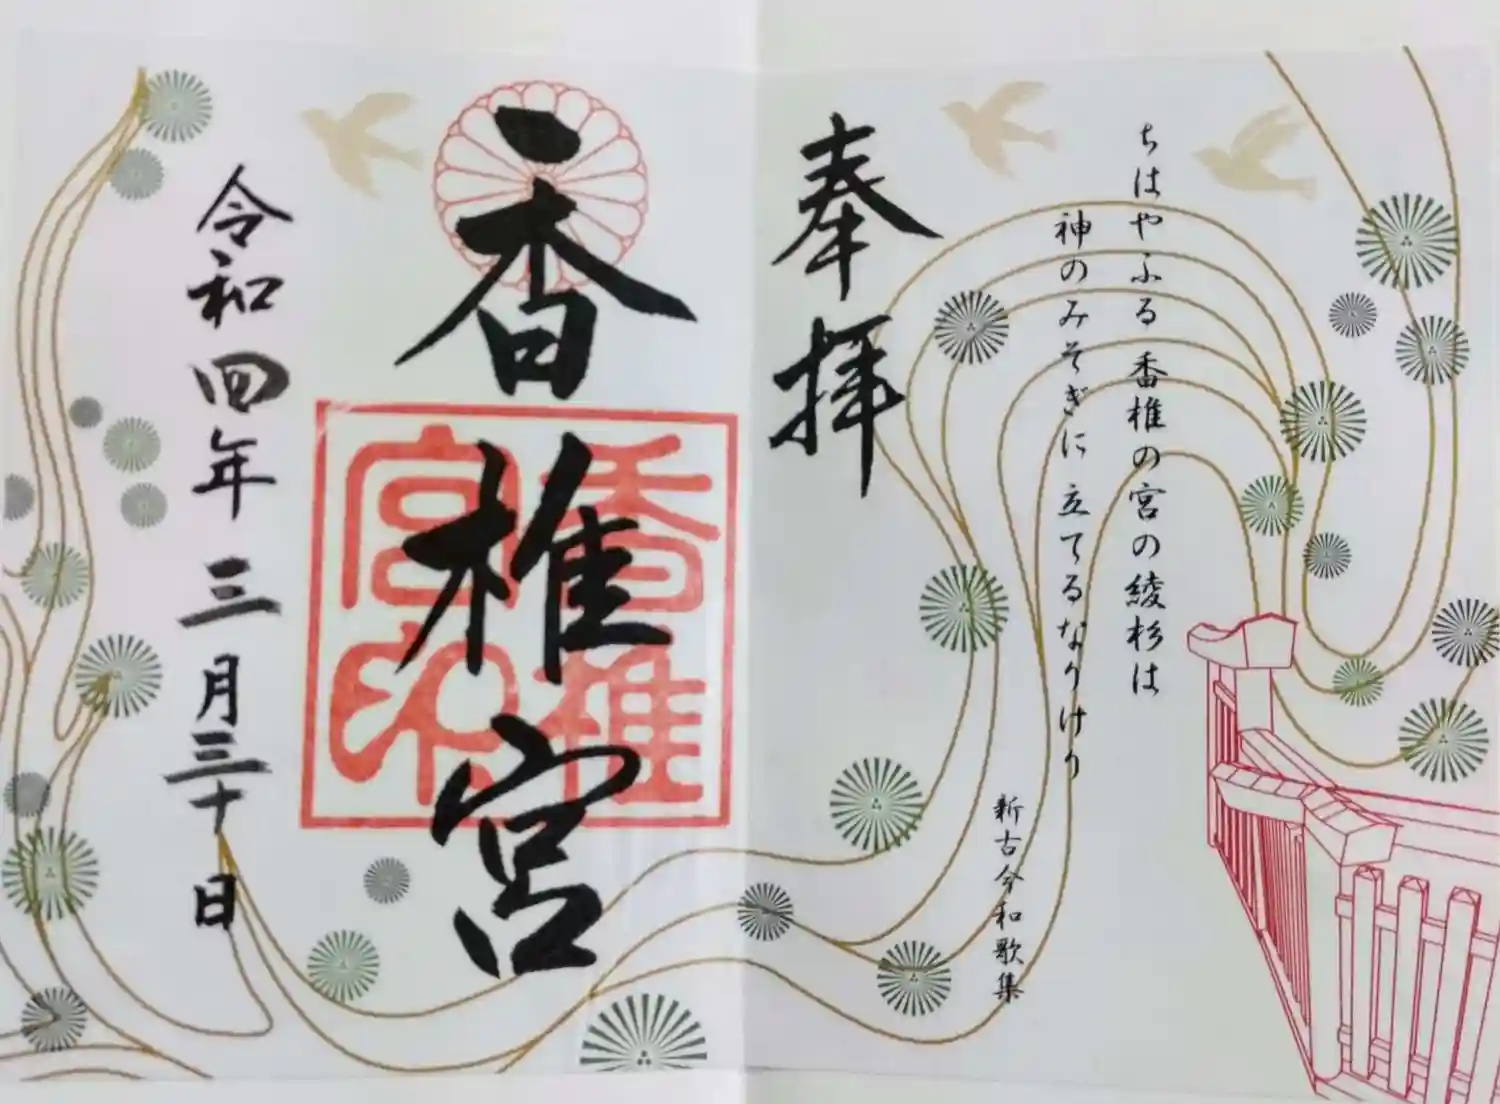 ちはやふる香椎の宮の綾杉は
神のみそぎに立てるなりけり
新古今和歌集
奉拝
香椎宮
香椎宮印
令和四年三月三十日